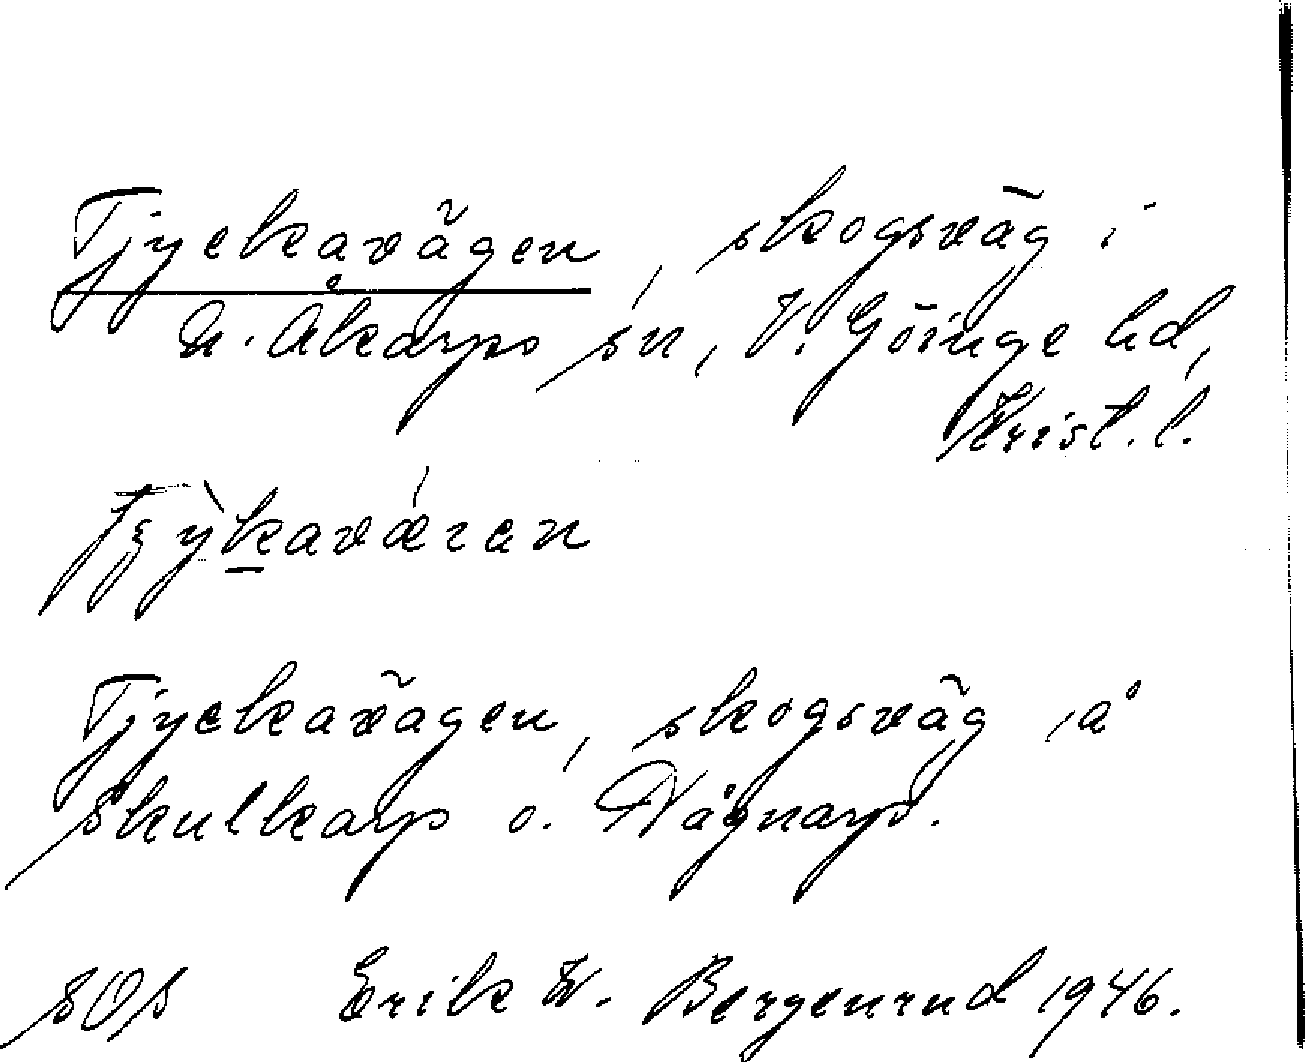 Tjyckavägen, skogsväg i
N. Åkarps sn, V. Göinge hd,
Krist. l.
Tjyckavägen, skogsväg å
Skulkarp o. Vågnarp.
SOS Erik W. Bergenrud 1946.